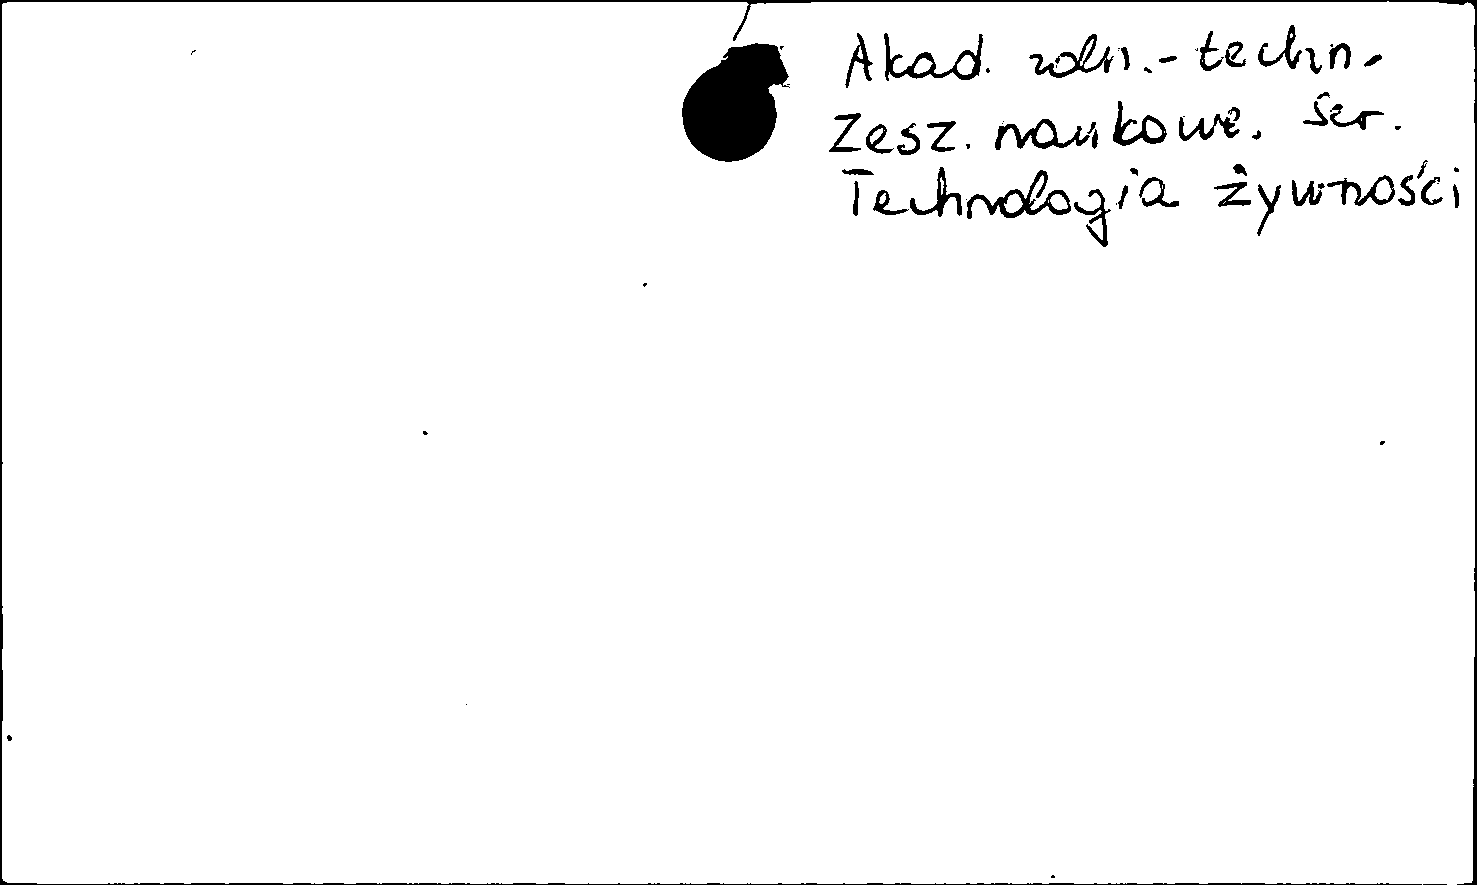 Akad. roln.-techn.
Zesz. naukowe. Ser.
Technologia żywności